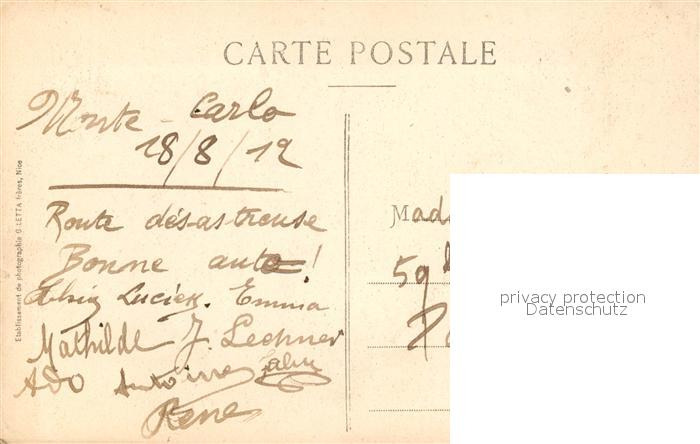 CARTE POSTALE
Monte-Carlo
18/8/12
Route désastreuse
Bonne auto!
Lucien. Emma
Mathilde J. Lechner
Ado Antoine
René
Mad
59
privacy protection
Datenschutz
Etablissement de photographie GILETTA frères, Nice